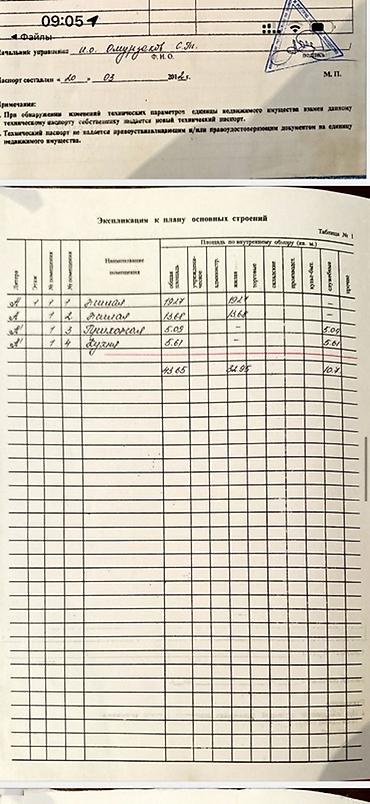 09:05
Файлы
Начальник управления и.о. С.Т.
Ф. И. О.
подпись
Паспорт составлен « 20 » 03 2012 г.
М. П.
Примечания:
При обнаружении изменений технических параметров единицы недвижимого имущества взамен данному
техническому паспорту собственнику выдается новый технический паспорт.
Технический паспорт не является правоустанавливающим и/или правоудостоверяющим документом на единицу
недвижимого имущества.
Экспликация к плану основных строений
Таблица № 1
Литера
Этаж
№ помещения
№ помещения
Наименование помещения
Площадь по внутреннему обмеру (кв. м.)
общая площадь
учрежденческое
администр.
жилая
торговые
складские
производст.
культ-быт.
служебные
прочие
А 1 1 1 Жилая 19.27 19.27 –
А 1 2 Жилая 13.68 13.68 –
А 1 3 Прихожая 5.09 – 5.09
А 1 4 Кухня 5.61 – 5.61
43.65 32.95 10.7